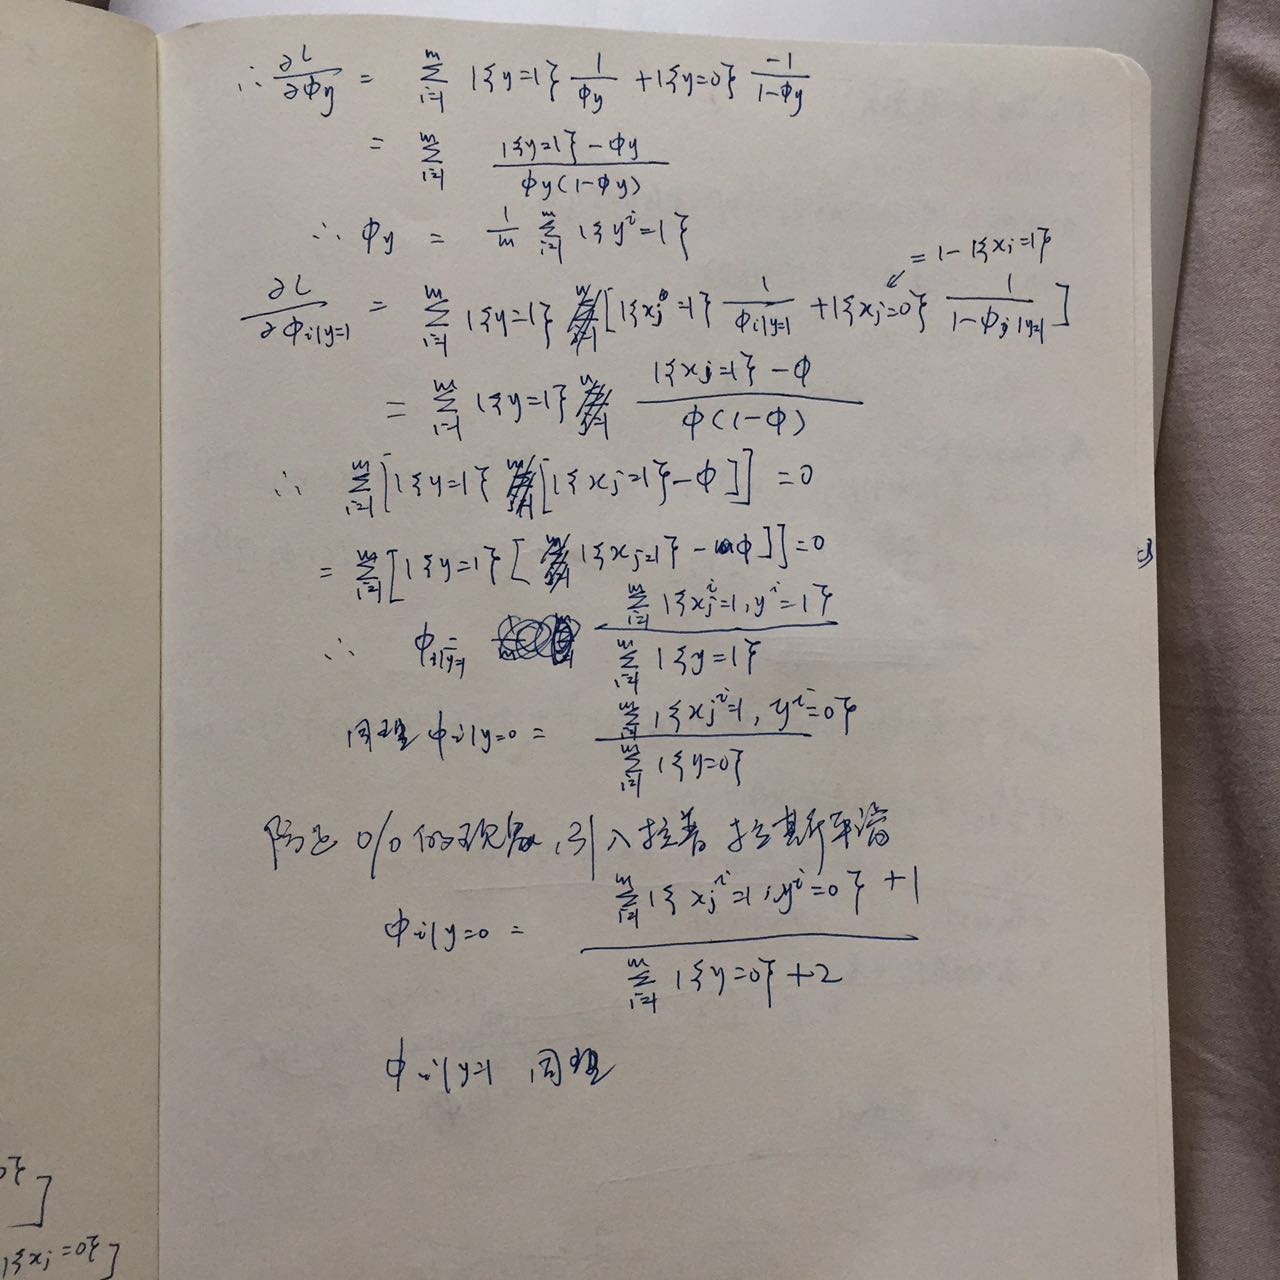 ∴ ∂L/∂φy = Σ_{i=1}^{m} 1{y=1} 1/φy + 1{y=0} -1/(1-φy)
= Σ_{i=1}^{m} (1{y=1} - φy)/(φy(1-φy))
∴ φy = 1/m Σ_{i=1}^{m} 1{y^i=1}
= 1-1{xj=1}
∂L/∂φ_{i|y=1} = Σ_{i=1}^{m} 1{y=1} [1{xj=1} 1/φ_{i|y=1} + 1{xj=0} 1/(1-φ_{j|y=1})]
= Σ_{i=1}^{m} 1{y=1} (1{xj=1} - φ)/(φ(1-φ))
∴ Σ_{i=1}^{m} [1{y=1} [1{xj=1} - φ]] = 0
= Σ_{i=1}^{m} [1{y=1} [1{xj=1} - φ]] = 0
∴ φ_{i|y=1} = Σ_{i=1}^{m} 1{xj^i=1, y^i=1} / Σ_{i=1}^{m} 1{y=1}
同理 φ_{i|y=0} = Σ_{i=1}^{m} 1{xj^i=1, y^i=0} / Σ_{i=1}^{m} 1{y=0}
防止 0/0 的现象,引入拉普拉斯平滑
φ_{i|y=0} = (Σ_{i=1}^{m} 1{xj^i=1, y^i=0} + 1) / (Σ_{i=1}^{m} 1{y=0} + 2)
φ_{i|y=1} 同理
0}]
1{xj=0}]